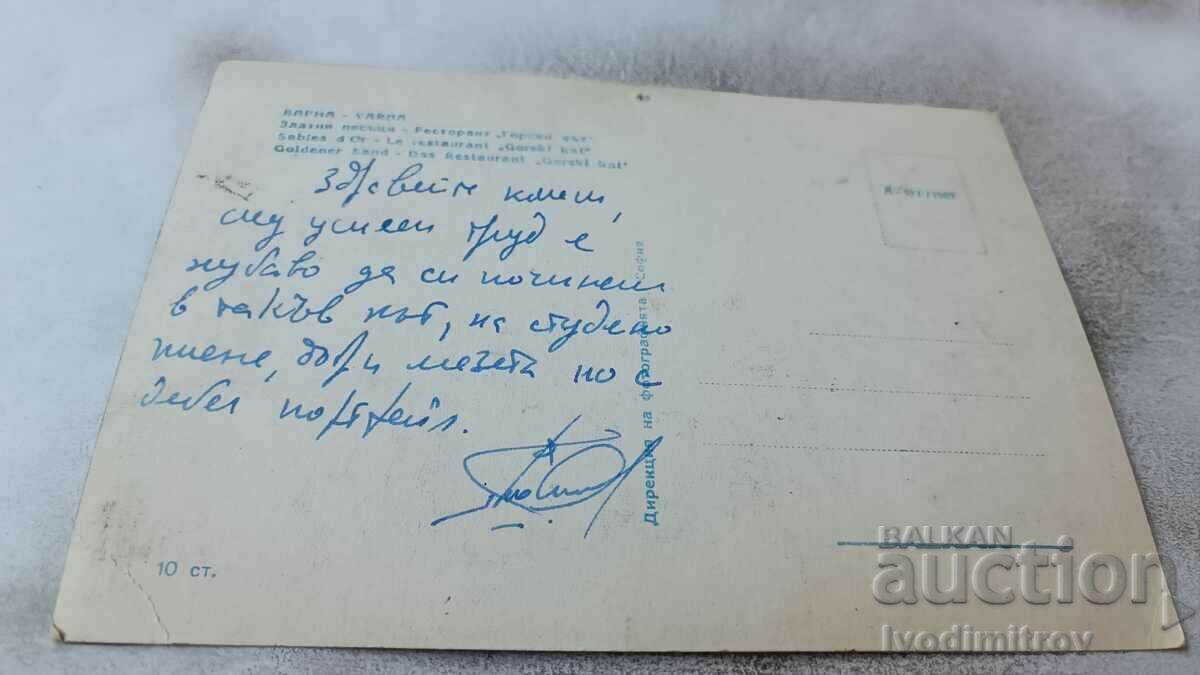 ВАРНА - VARNA
Златни пясъци - Ресторант „Горски кът“
Sables d'Or - Le restaurant „Gorski kat“
Goldener Sand - Das Restaurant „Gorski kat“
Здравейте
труд е
хубаво да си починеш
в такъв кът, на студено
пиене, добри мезета но с
дебел портфейл.
Дирекция на фотографията София
10 ст.
BALKAN
auction
Ivodimitrov